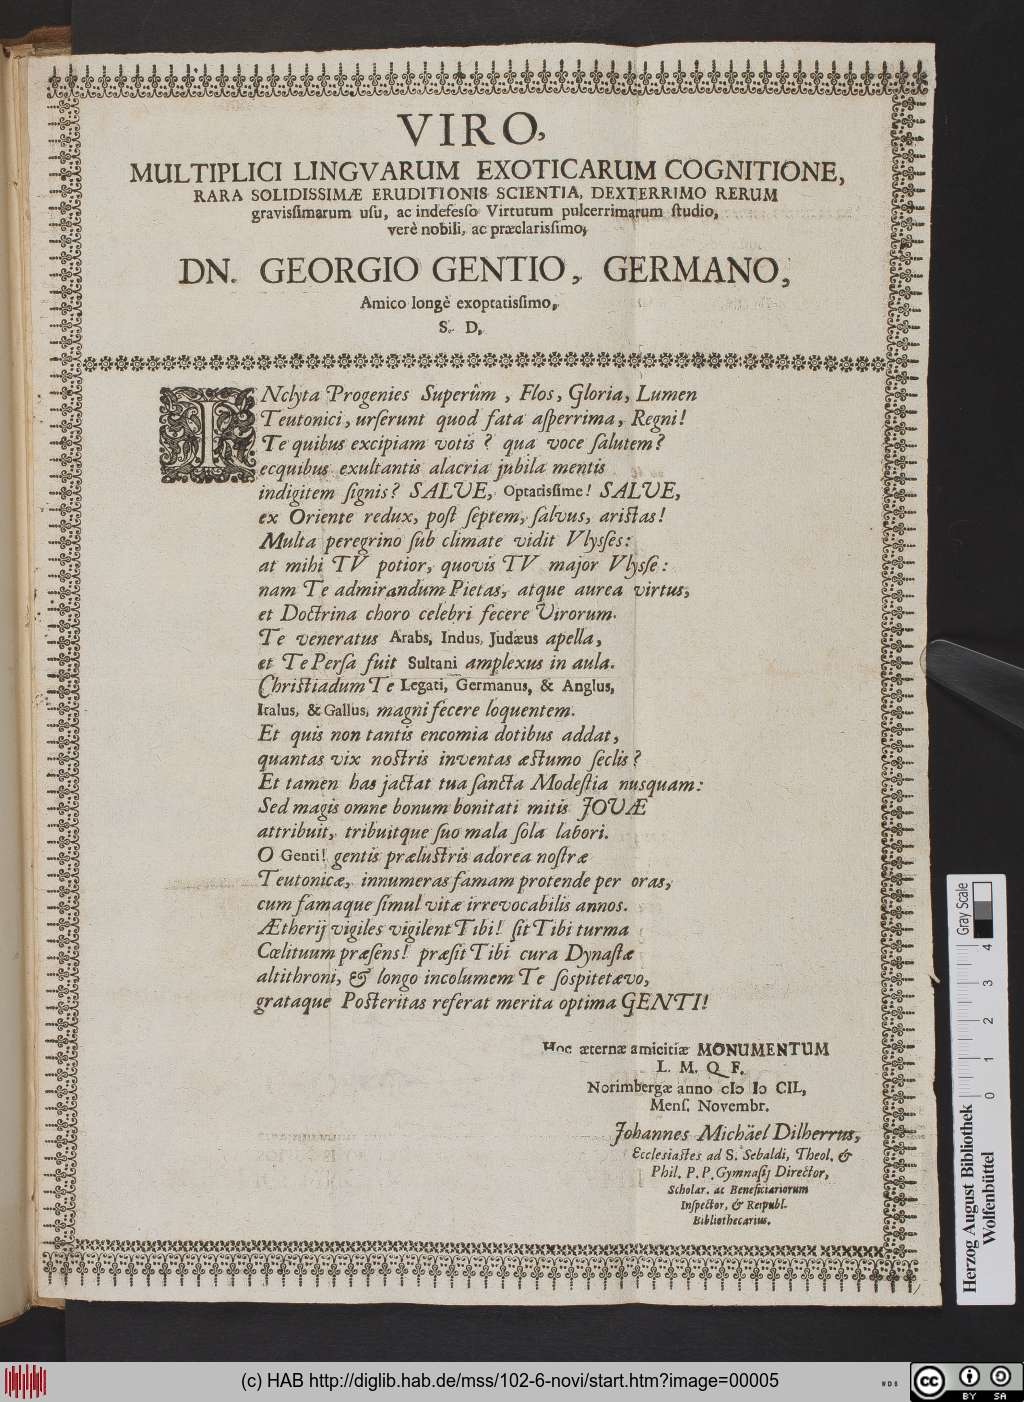 VIRO,
MULTIPLICI LINGVARUM EXOTICARUM COGNITIONE,
RARA SOLIDISSIMÆ ERUDITIONIS SCIENTIA, DEXTERRIMO RERUM
gravissimarum usu, ac indefesso Virtutum pulcerrimarum studio,
verè nobili, ac præclarissimo,
DN. GEORGIO GENTIO, GERMANO,
Amico longè exoptatissimo,
S. D.
INclyta Progenies Superûm, Flos, Gloria, Lumen
Teutonici, urserunt quod fata asperrima, Regni!
Te quibus excipiam votis? qua voce salutem?
ecquibus exultantis alacria jubila mentis
indigitem signis? SALVE, Optatissime! SALVE,
ex Oriente redux, post septem, salvus, aristas!
Multa peregrino sub climate vidit Vlysses:
at mihi TV potior, quovis TV major Vlysse:
nam Te admirandum Pietas, atque aurea virtus,
et Doctrina choro celebri fecere Virorum.
Te veneratus Arabs, Indus, Judæus apella,
et Te Persa fuit Sultani amplexus in aula.
Christiadum Te Legati, Germanus, & Anglus,
Italus, & Gallus, magni fecere loquentem.
Et quis non tantis encomia dotibus addat,
quantas vix nostris inventas æstumo seclis?
Et tamen has jactat tua sancta Modestia nusquam:
Sed magis omne bonum bonitati mitis JOVÆ
attribuit, tribuitque suo mala sola labori.
O Genti! gentis prælustris adorea nostræ
Teutonicæ, innumeras famam protende per oras,
cum famaque simul vitæ irrevocabilis annos.
Ætherij vigiles vigilent Tibi! sit Tibi turma
Cœlituum præsens! præsit Tibi cura Dynastæ
altithroni, & longo incolumem Te sospitet ævo,
grataque Posteritas referat merita optima GENTI!
Hoc æternæ amicitiæ MONUMENTUM
L. M. Q F.
Norimbergæ anno cIɔ Iɔ CIL,
Mens. Novembr.
Johannes Michäel Dilherrus,
Ecclesiastes ad S. Sebaldi, Theol. &
Phil. P. P. Gymnasij Director,
Scholar. ac Beneficiariorum
Inspector, & Reipubl.
Bibliothecarius.
Gray Scale
0 1 2 3 4
Herzog August Bibliothek
Wolfenbüttel
(c) HAB http://diglib.hab.de/mss/102-6-novi/start.htm?image=00005
WDB
cc BY SA